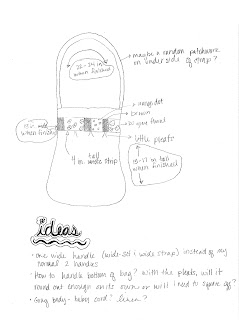 maybe a random patchwork
on underside of strap?
22-24 in
when finished
orange dot
brown
little pleats
when finished
tall
4 in. wide strip
15-17 in tall
when finished?
ideas
• one wide handle (wide-set & wide strap) instead of my
normal 2 handles
• How to handle bottom of bag? With the pleats, will it
round out enough on its own or will I need to square off?
• Gray body - baby cord? linen?